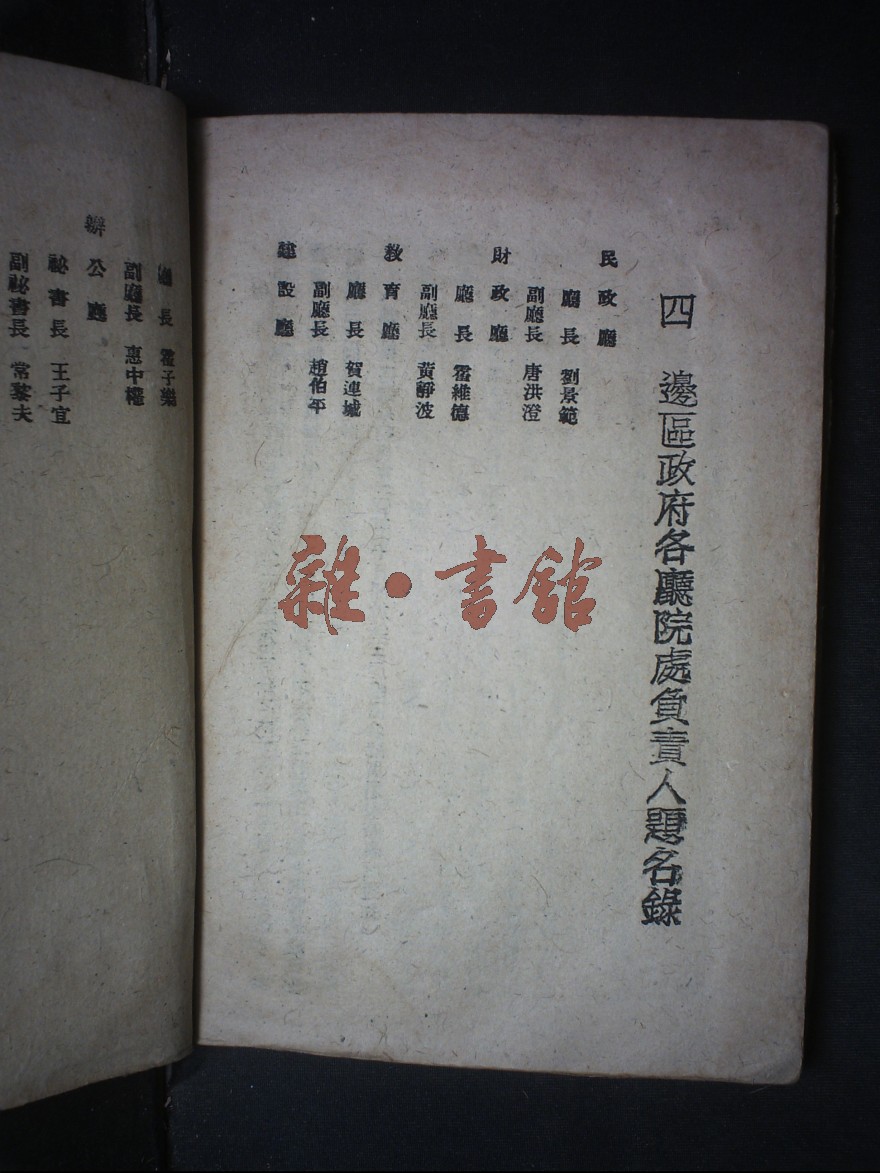 四 邊區政府各廳院處負責人題名錄
民政廳
廳長 劉景範
副廳長 唐洪澄
財政廳
廳長 霍維德
副廳長 黃靜波
教育廳
廳長 賀連城
副廳長 趙伯平
建設廳
廳長 霍子樂
副廳長 惠中權
辦公廳
祕書長 王子宜
副祕書長 常黎夫
雜·書館